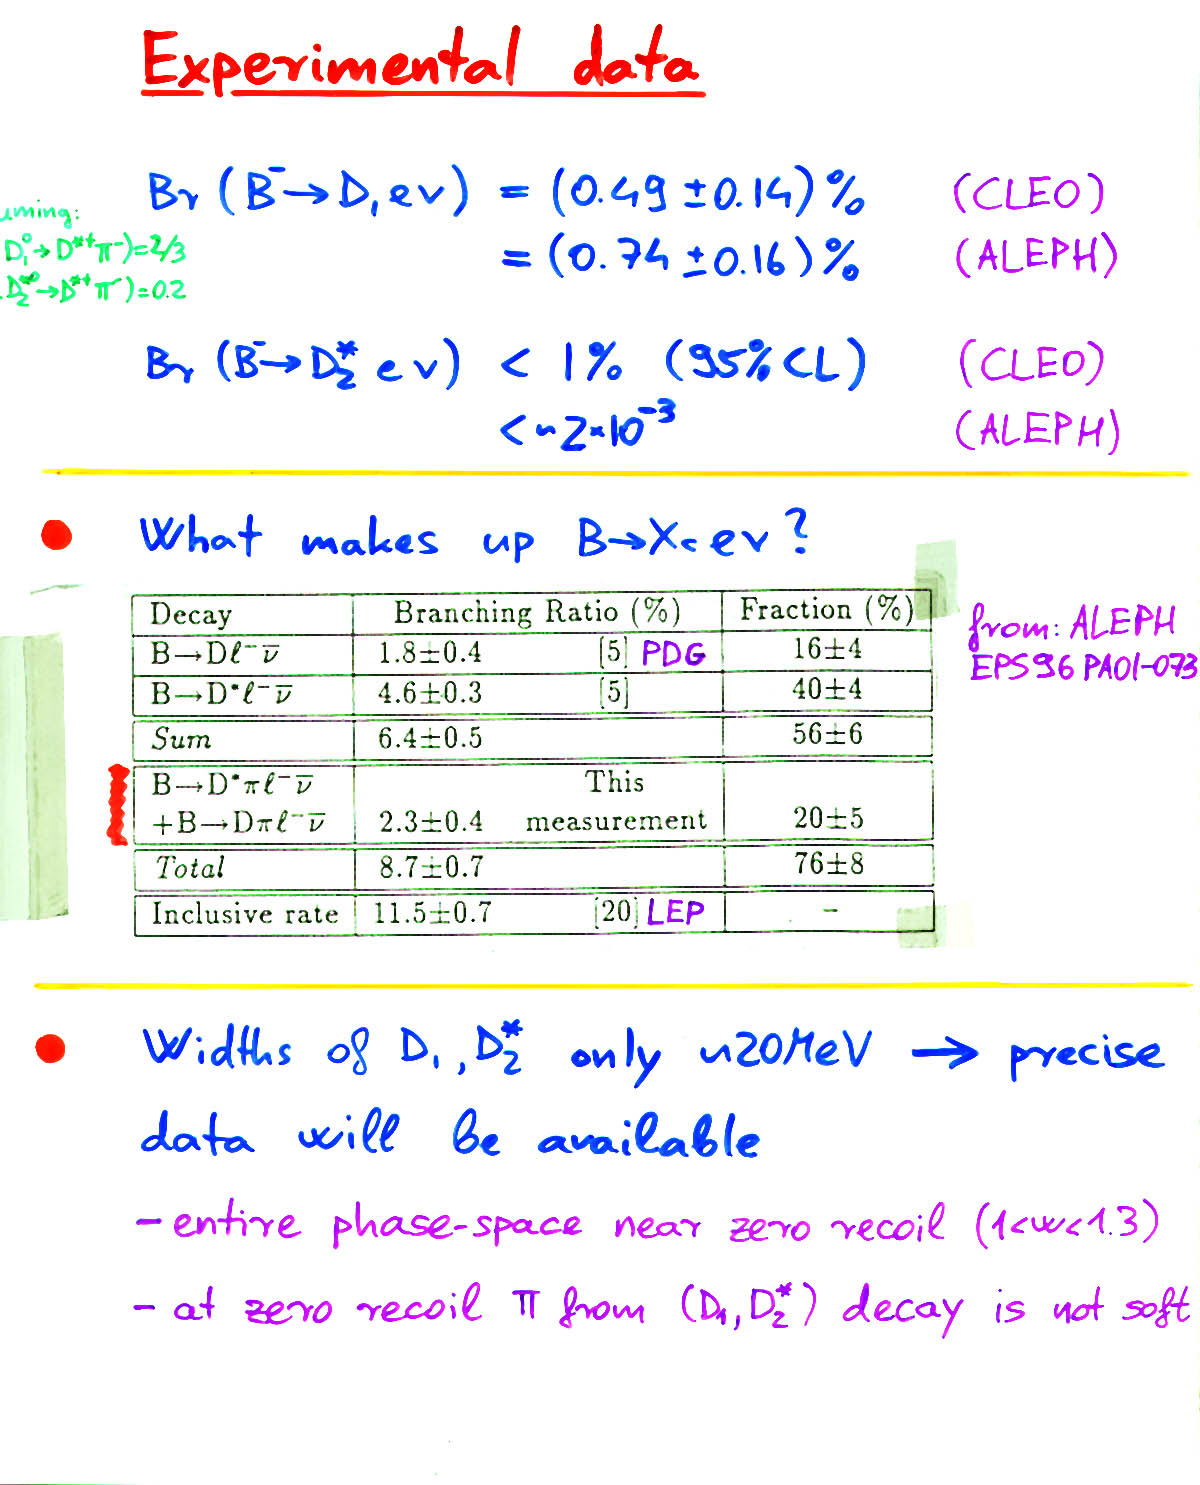 Experimental data
Br (B⁻→D₁eν) = (0.49 ±0.14)% (CLEO)
= (0.74 ±0.16)% (ALEPH)
uming:
D₁⁰→D*⁺π⁻)=2/3
D₂*⁰→D*⁺π⁻)=0.2
Br (B⁻→D₂* eν) < 1% (95% CL) (CLEO)
< ~2×10⁻³ (ALEPH)
• What makes up B→Xc eν?
Decay Branching Ratio (%) Fraction (%)
B→Dℓ⁻ν̄ 1.8±0.4 [5] PDG 16±4
B→D*ℓ⁻ν̄ 4.6±0.3 [5] 40±4
Sum 6.4±0.5 56±6
B→D*πℓ⁻ν̄ This
+B→Dπℓ⁻ν̄ 2.3±0.4 measurement 20±5
Total 8.7±0.7 76±8
Inclusive rate 11.5±0.7 [20] LEP –
from: ALEPH
EPS96 PA01-073
• Widths of D₁, D₂* only ~20MeV → precise
data will be available
- entire phase-space near zero recoil (1<w<1.3)
- at zero recoil π from (D₁, D₂*) decay is not soft